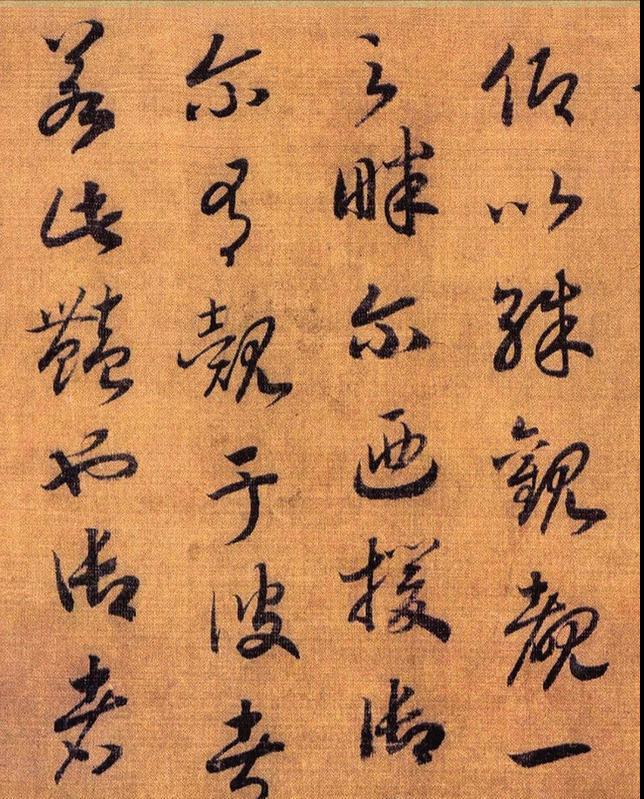 仰以殊觀覩一
之畔尔迺援御
尔有覿于彼者
若此豔也御者